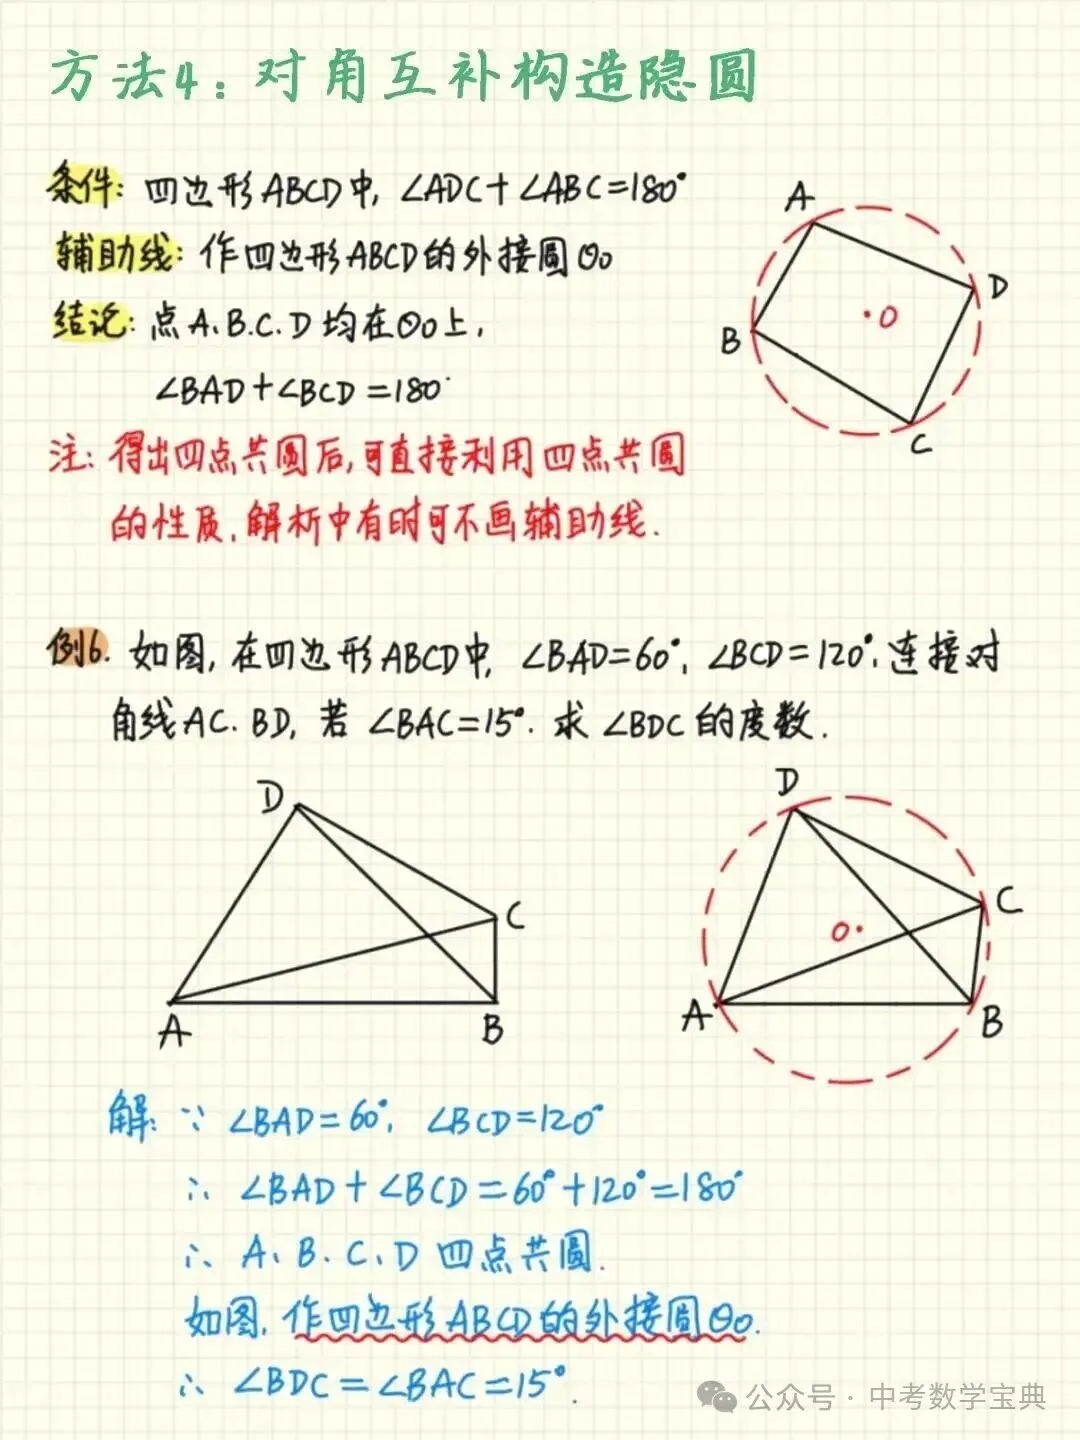 方法4：对角互补构造隐圆
条件：四边形ABCD中，∠ADC+∠ABC=180°
辅助线：作四边形ABCD的外接圆⊙O
结论：点A、B、C、D均在⊙O上，
∠BAD+∠BCD=180°
注：得出四点共圆后，可直接利用四点共圆
的性质，解析中有时可不画辅助线．
A
D
O
B
C
例6．如图，在四边形ABCD中，∠BAD=60°，∠BCD=120°，连接对
角线AC、BD，若∠BAC=15°．求∠BDC的度数．
D
C
A
B
D
C
O
A
B
解：∵∠BAD=60°，∠BCD=120°
∴∠BAD+∠BCD=60°+120°=180°
∴A、B、C、D四点共圆．
如图，作四边形ABCD的外接圆⊙O．
∴∠BDC=∠BAC=15°．
公众号·中考数学宝典